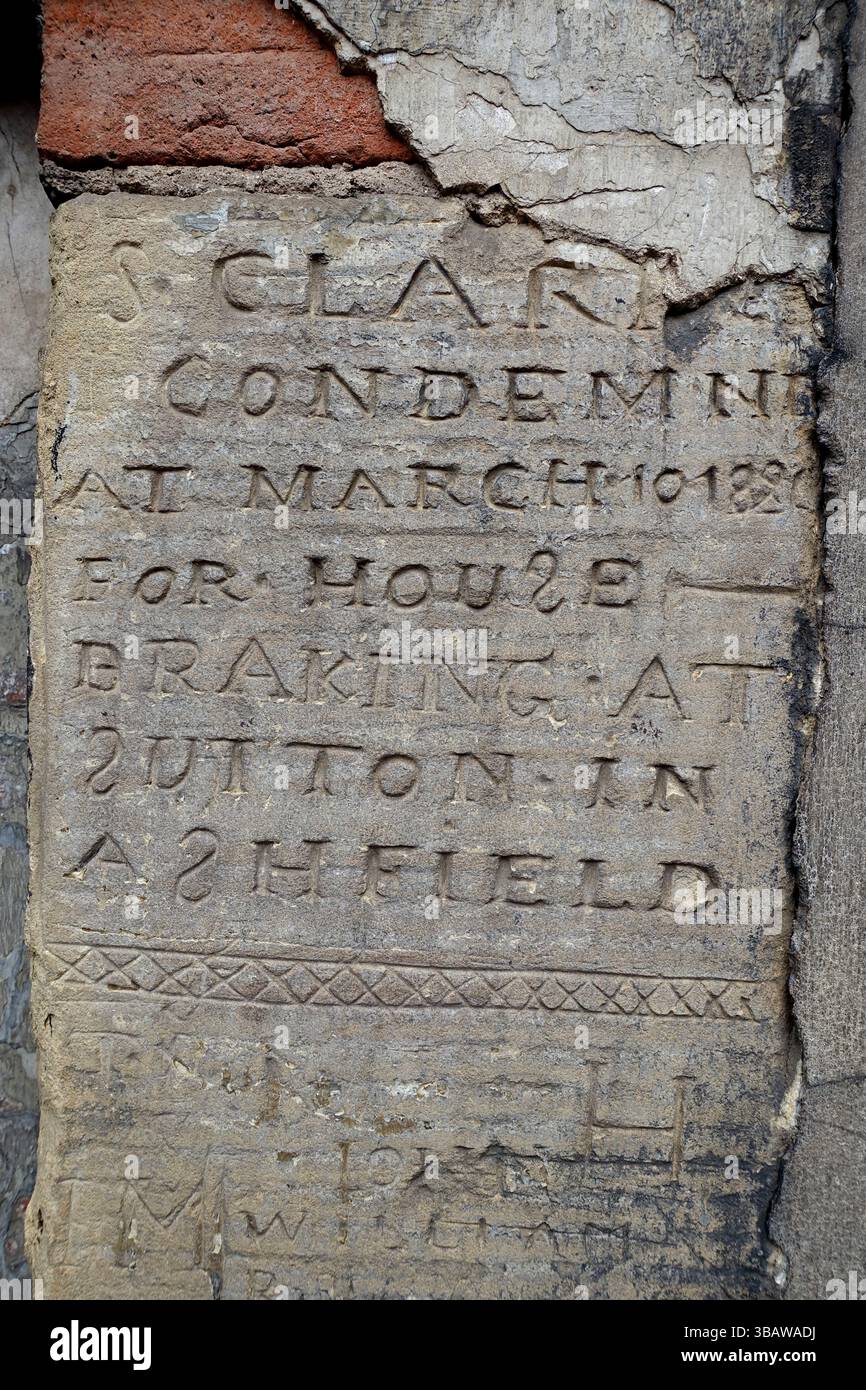 S CLARK
CONDEMND
AT MARCH·10·1
FOR·HOUSE
BRAKING·AT
SUTTON·IN
ASHFIELD
H
IM WILLIAM
alamy
Image ID: 3BAWADJ
www.alamy.com